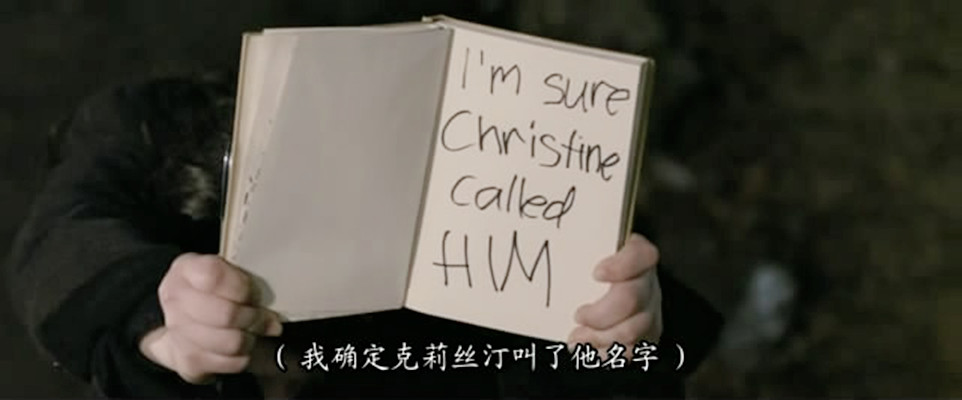 I'm sure
Christine
called
HIM
（我确定克莉丝汀叫了他名字）